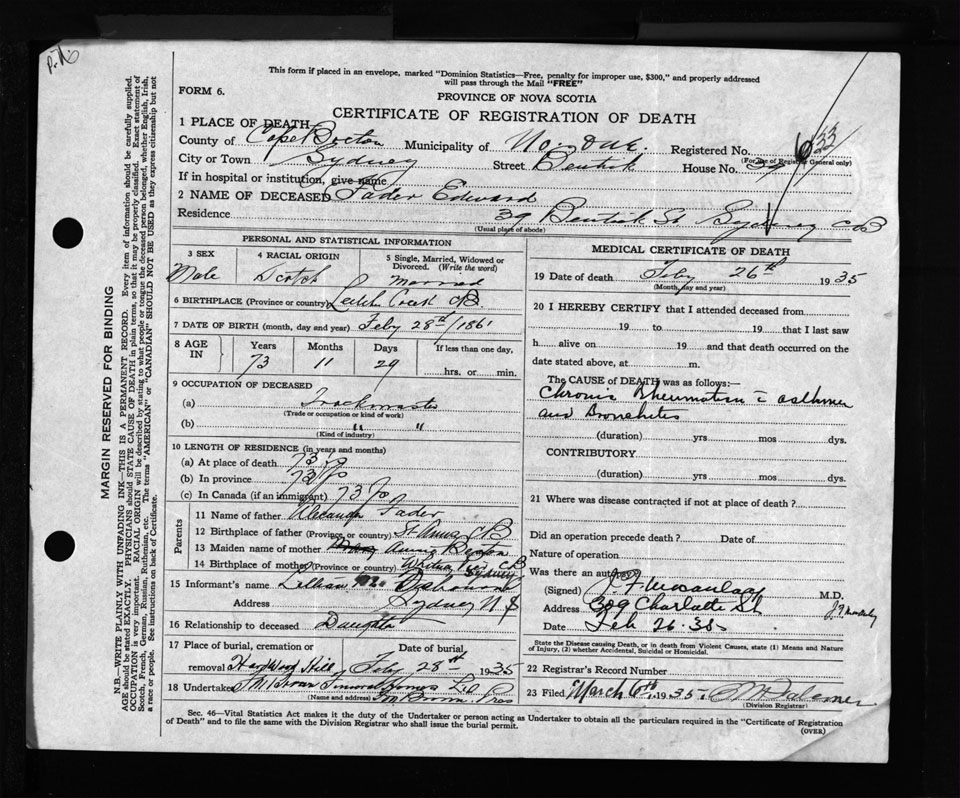 This form if placed in an envelope, marked "Dominion Statistics—Free, penalty for improper use, $300," and properly addressed
will pass through the Mail "FREE"
FORM 6.
PROVINCE OF NOVA SCOTIA
CERTIFICATE OF REGISTRATION OF DEATH
1 PLACE OF DEATH
County of Cape Breton Municipality of Registered No.
(For use of Registrar General only)
City or Town Sydney Street Bentick House No. 39
If in hospital or institution, give name
2 NAME OF DECEASED Fader Edward
Residence 39 Bentick St Sydney CB
(Usual place of abode)
PERSONAL AND STATISTICAL INFORMATION
3 SEX 4 RACIAL ORIGIN 5 Single, Married, Widowed or
Divorced. (Write the word)
Male Scotch Married
6 BIRTHPLACE (Province or country) CB
7 DATE OF BIRTH (month, day and year) Feby 28th/1861
8 AGE IN Years Months Days If less than one day,
73 11 29 hrs. or min.
9 OCCUPATION OF DECEASED
(a) Trackmaster
(Trade or occupation or kind of work)
(b) " "
(Kind of industry)
10 LENGTH OF RESIDENCE (in years and months)
(a) At place of death 73
(b) In province 73
(c) In Canada (if an immigrant) 73
Parents
11 Name of father Alexander Fader
12 Birthplace of father (Province or country) St Anns CB
13 Maiden name of mother Annie
14 Birthplace of mother (Province or country) CB
15 Informant's name Lillian
Address Sydney N S
16 Relationship to deceased Daughter
17 Place of burial, cremation or Date of burial.
removal Hardwood Hill Feby 28th 1935
18 Undertaker
(Name and address)
MEDICAL CERTIFICATE OF DEATH
19 Date of death Feby 26th 1935
(Month, day and year)
20 I HEREBY CERTIFY that I attended deceased from
19 to 19 that I last saw
h alive on 19 and that death occurred on the
date stated above, at m.
The CAUSE of DEATH was as follows:—
Chronic Rheumatism c asthma
and Bronchitis
(duration) yrs mos dys.
CONTRIBUTORY
(duration) yrs mos dys.
21 Where was disease contracted if not at place of death?
Did an operation precede death? Date of
Nature of operation
Was there an autopsy
(Signed) M.D.
Address 309 Charlotte St
Date Feb 26. 35
State the Disease causing Death, or in death from Violent Causes, state (1) Means and Nature
of Injury, (2) whether Accidental, Suicidal or Homicidal.
22 Registrar's Record Number
23 Filed March 6th 1935
(Division Registrar)
Sec. 46—Vital Statistics Act makes it the duty of the Undertaker or person acting as Undertaker to obtain all the particulars required in the "Certificate of Registration
of Death" and to file the same with the Division Registrar who shall issue the burial permit.
(OVER)
MARGIN RESERVED FOR BINDING
N.B.—WRITE PLAINLY WITH UNFADING INK—THIS IS A PERMANENT RECORD. Every item of information should be carefully supplied.
AGE should be stated EXACTLY. PHYSICIANS should STATE CAUSE OF DEATH in plain terms, so that it may be properly classified. Exact statement of
OCCUPATION is very important. RACIAL ORIGIN will be described by stating to what people or tongue the deceased person belonged, whether English, Irish,
Scotch, French, German, Russian, Ruthenian, etc. The terms "AMERICAN" or "CANADIAN" SHOULD NOT BE USED as they express citizenship but not
a race or people. See instructions on back of Certificate.